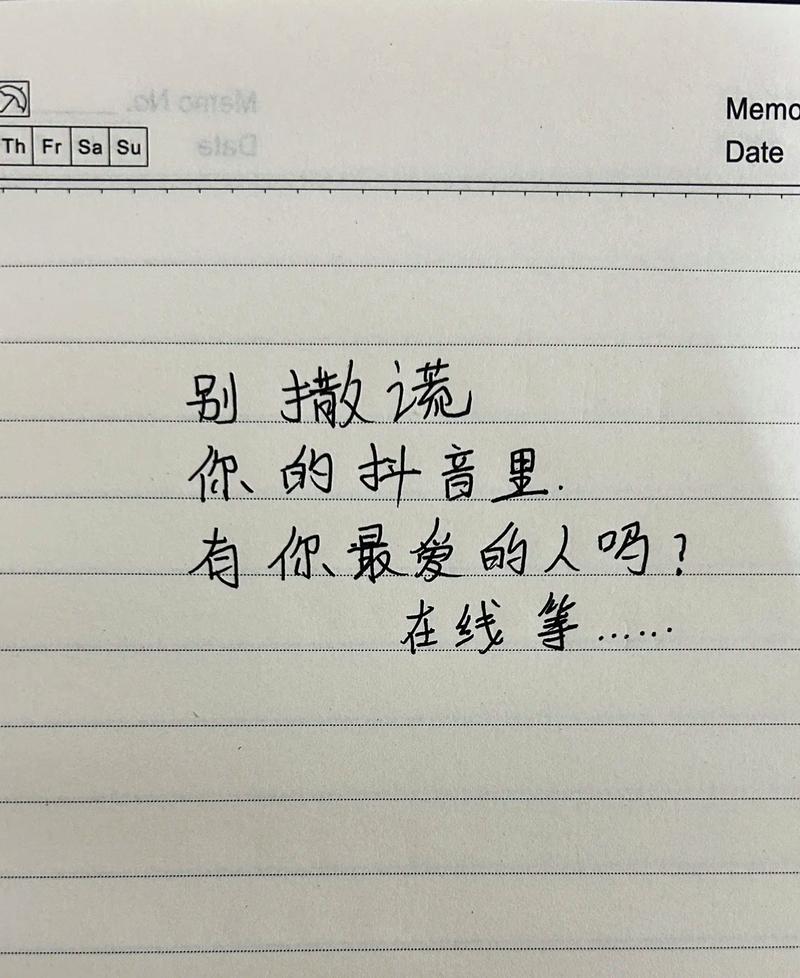 Memo
Date
Th Fr Sa Su
Memo No.
Date
别撒谎
你的抖音里.
有你最爱的人吗?
在线等......